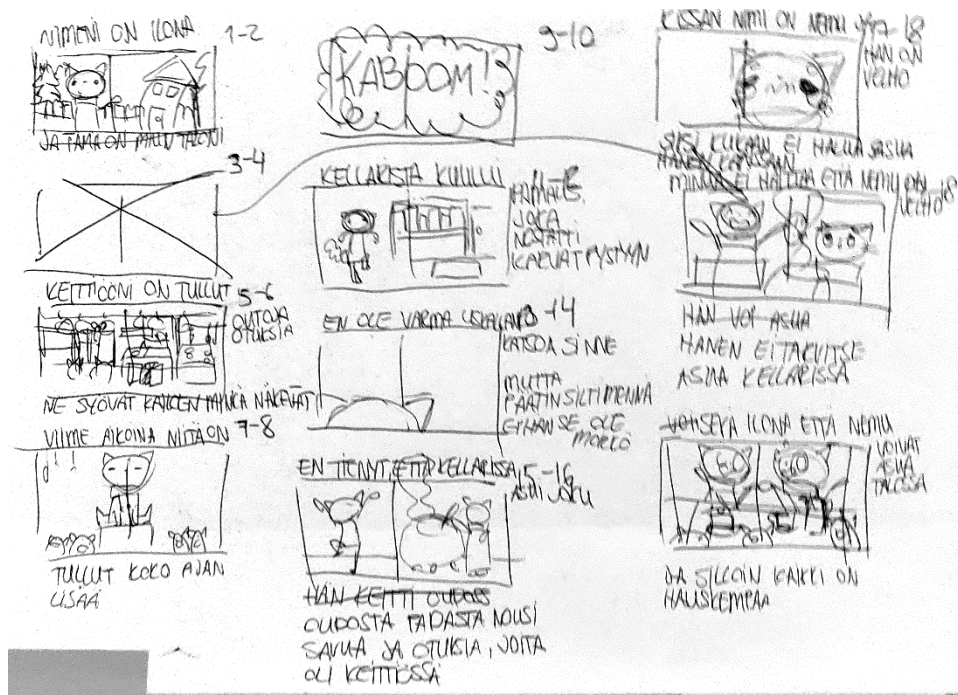 NIMENI ON ILONA
1-2
JA TÄMÄ ON MINUN TALONI
3-4
KEITTIÖÖNI ON TULLUT 5-6
OUTOJA
OTUKSIA
NE SYÖVÄT KAIKEN MINKÄ NÄKEVÄT
VIIME AIKOINA NIITÄ ON 7-8
TULLUT KOKO AJAN
LISÄÄ
9-10
KABOOM!
KELLARISTA KUULUI
JOKA
NOSTATTI
KARVAT PYSTYYN
EN OLE VARMA -14
KATSOA SINNE
MUTTA
PÄÄTIN SILTI MENNÄ
EIHÄN SE OLE
MÖRKÖ
EN TIENNYT, ETTÄ KELLARISSA 15-16
ASUI JOKU
HÄN KEITTI OUDOS
OUDOSTA PADASTA NOUSI
SAVUA JA OTUKSIA, JOITA
OLI KEITTIÖSSÄ
KISSAN NIMI ON NEMU JA 17-18
HÄN ON
VELHO
SIKSI KUKAAN EI HALUA ASUA
HÄNEN KANSSAAN
MINUA EI HAITTAA ETTÄ NEMU ON
VELHO 18
HÄN VOI ASUA
HÄNEN EI TARVITSE
ASUA KELLARISSA
ILONA ETTÄ NEMU
VOIVAT
ASUA
TALOSSA
JA SILLOIN KAIKKI ON
HAUSKEMPAA